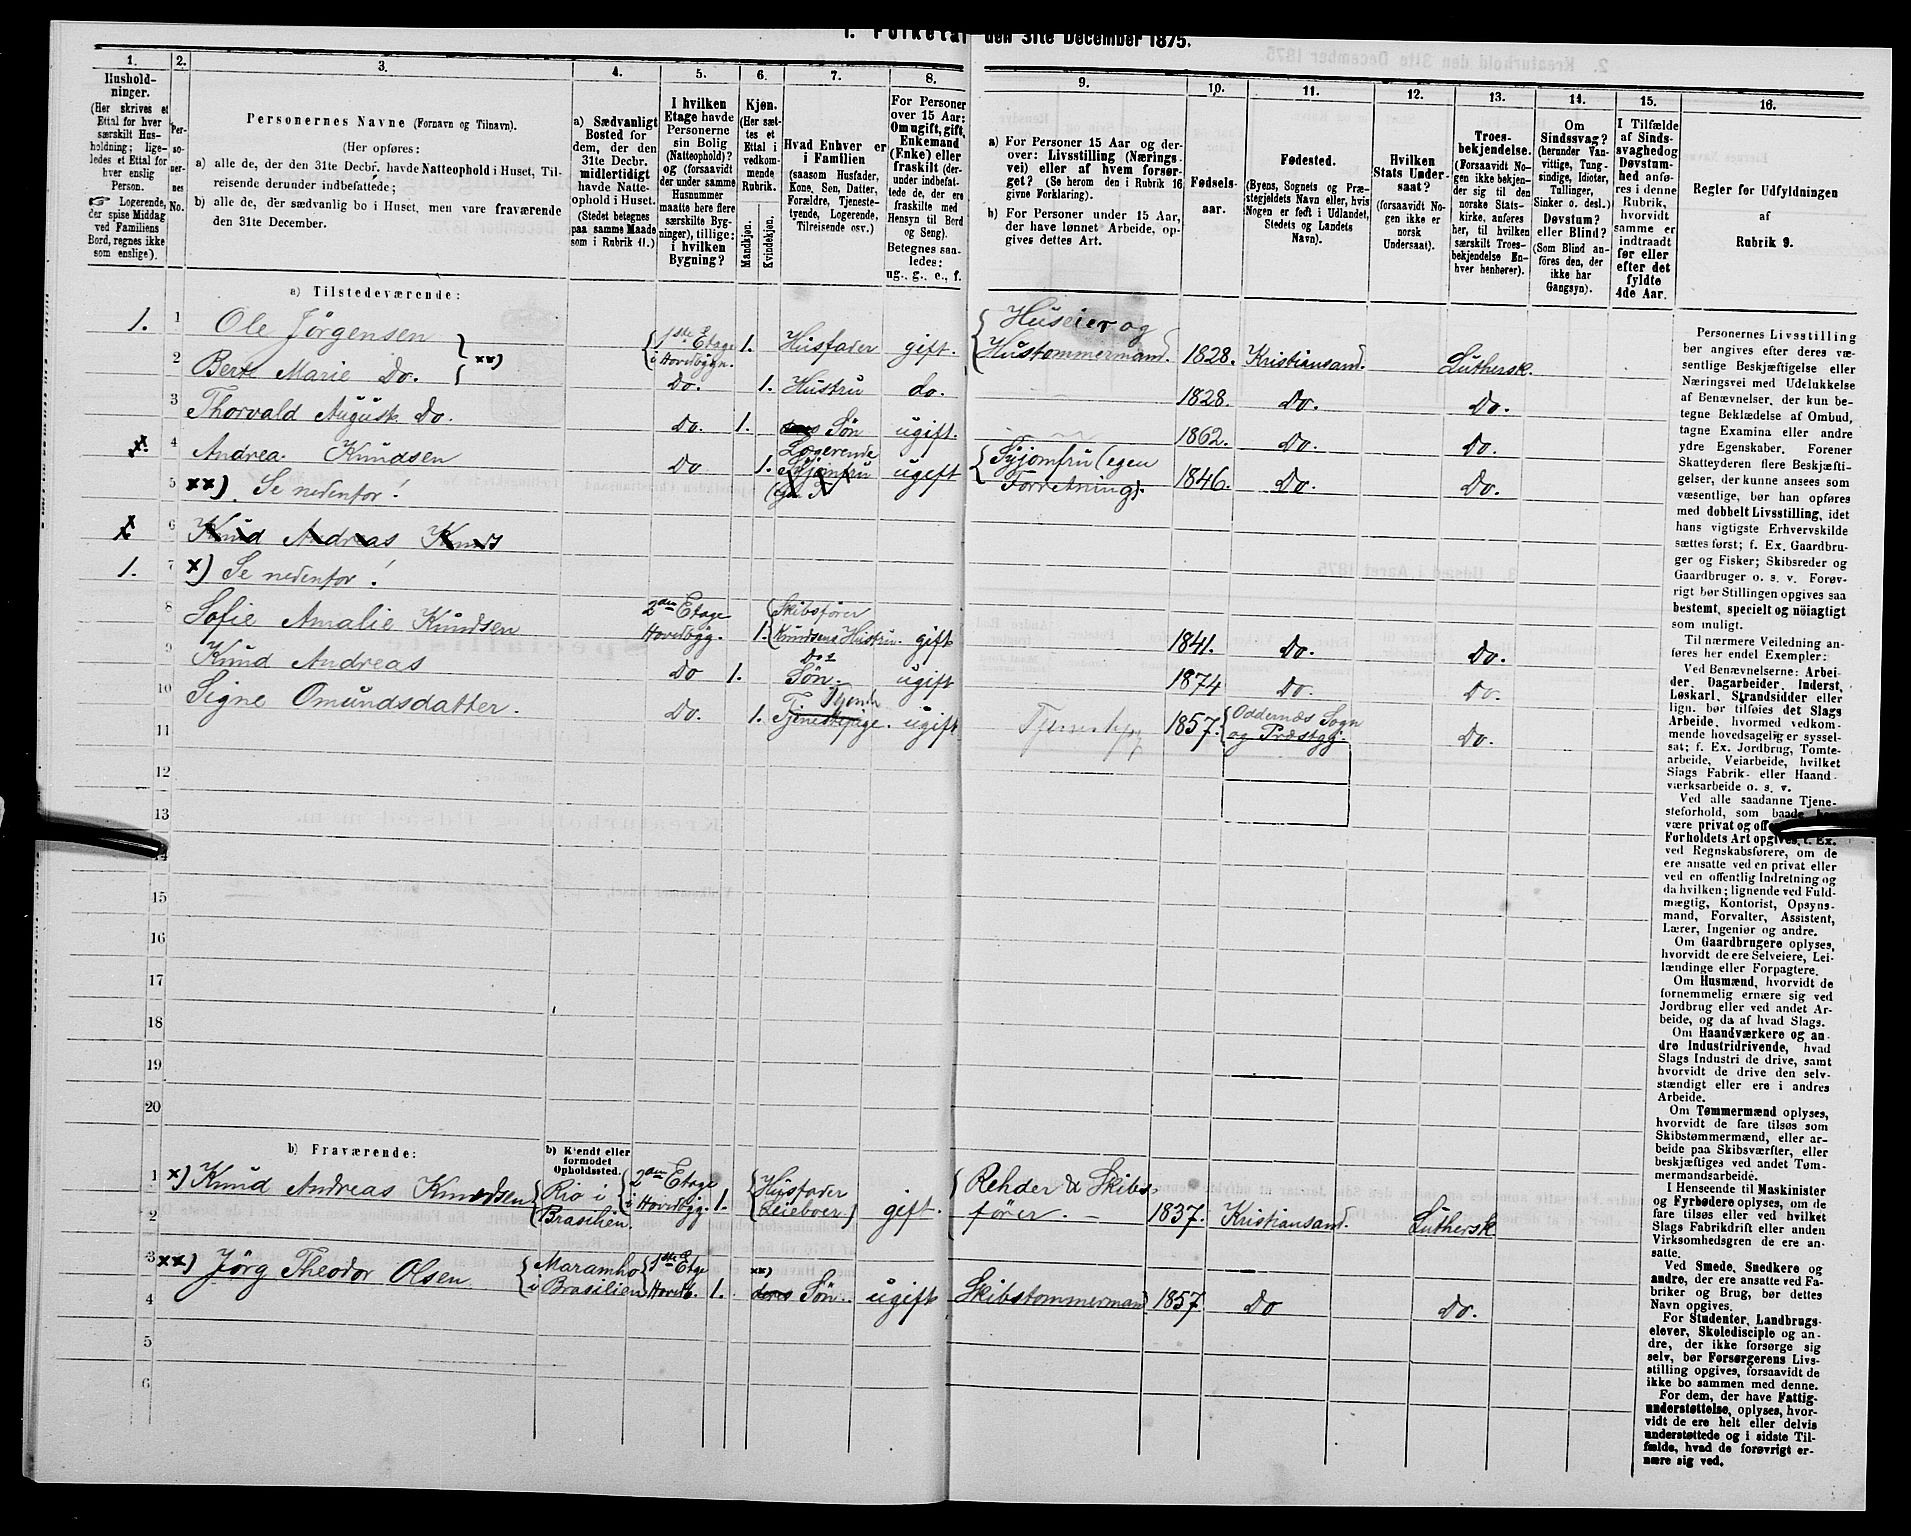 1. Folketal den 31te December 1875.
1.
Hushold-
ninger.
(Her skrives et
Ettal for hver
særskilt Hus-
holdning; lige-
ledes et Ettal for
hver enslig
Person.
☞ Logerende,
der spise Middag
ved Familiens
Bord, regnes ikke
som enslige).
2.
Per-
so-
ner-
nes
No.
3.
Personernes Navne (Fornavn og Tilnavn).
(Her opføres:
a) alle de, der den 31te Decbr. havde Natteophold i Huset, Til-
reisende derunder indbefattede;
b) alle de, der sædvanlig bo i Huset, men vare fraværende
den 31te December.
4.
a) Sædvanligt
Bosted for
dem, der den
31te Decbr.
midlertidigt
havde Natte-
ophold i Huset.
(Stedet betegnes
paa samme Maade
som i Rubrik 11.)
5.
I hvilken
Etage havde
Personerne
sin Bolig
(Natteophold)?
og (forsaavidt
der under samme
Husnummer
maatte høre flere
særskilte Byg-
ninger), tillige:
i hvilken
Bygning?
6.
Kjøn.
(Her sæt-
tes et
Ettal i
vedkom-
mende
Rubrik.
Mandkjøn.
Kvindekjøn.
7.
Hvad Enhver er
i Familien
(saasom Husfader,
Kone, Søn, Datter,
Forældre, Tjeneste-
tyende, Logerende,
Tilreisende osv.)
8.
For Personer
over 15 Aar:
Om ugift, gift,
Enkemand
(Enke) eller
fraskilt (der-
under indbefat-
tede de, der ere
fraskilte med
Hensyn til Bord
og Seng).
Betegnes saa-
ledes:
ug., g., e., f.
9.
a) For Personer 15 Aar og der-
over: Livsstilling (Nærings-
vei) eller af hvem forsør-
get? (Se herom den i Rubrik 16
givne Forklaring).
b) For Personer under 15 Aar,
der have lønnet Arbeide, op-
gives dettes Art.
10.
Fødsels-
aar.
11.
Fødested.
(Byens, Sognets og Præ-
stegjeldets Navn eller, hvis
Nogen er født i Udlandet,
Stedets og Landets
Navn).
12.
Hvilken
Stats Under-
saat?
(forsaavidt No-
gen ikke er
norsk
Undersaat).
13.
Troes-
bekjendelse.
(Forsaavidt No-
gen ikke bekjen-
der sig til den
norske Stats-
kirke, anføres
her, til hvilken
særskilt Troes-
bekjendelse En-
hver henhører).
14.
Om
Sindssvag?
(herunder Van-
vittige, Tung-
sindige, Idioter,
Tullinger,
Sinker o. desl.)
Døvstum?
eller Blind?
(Som Blind an-
føres den, der
ikke har
Gangsyn).
15.
I Tilfælde
af Sinds-
svaghed og
Døvstum-
hed anfø-
res i denne
Rubrik,
hvorvidt
samme er
indtraadt
før eller
efter det
fyldte
4de Aar.
16.
Regler for Udfyldningen
af
Rubrik 9.
a) Tilstedeværende:
1. 1 Ole Jörgensen } xx) { 1ste Etage i Hovedbygn. 1. Husfader gift. { Huseier og Hustommermand. 1828. Kristiansand. Luthersk.
2 Berte Marie Do. Do. 1. Hustru do. 1828. Do. Do.
3 Thorvald August Do. Do. 1. Sön ugift. 1862. Do. Do.
x. 4 Andrea Knudsen Do 1. Logerende Syjomfru ugift { Syjomfru (egen Forretning). 1846. Do. Do.
5 xx) Se nedenfor!
x 6 Knud Andreas Knuds
1. 7 x) Se nedenfor!
8 Sofie Amalie Knudsen 2den Etage Hovedbyg. 1. { Skibsförer Knudsens Hustru. gift 1841. Do. Do.
9 Knud Andreas Do 1. Do Sön. ugift 1874 Do. Do.
10 Signe Omundsdatter. Do. 1. Tjenestepige. Tyende ugift Tjenestepige 1857. { Oddernæs Sogn og Præstgj. Do.
11
12
13
14
15
16
17
18
19
20
b) Fraværende:
b) Kjendt eller
formodet
Opholdssted.
1 x) Knud Andreas Knudsen { Rio i Brasilien. { 2den Etage i Hovedbyg. 1. { Husfader (Leieboer) gift. { Rehder & Skibsförer. — 1837. Kristiansand. Luthersk
2
3 xx) Jörg Theodor Olsen { Maramho i Brasilien { 1ste Etge Hovedb. 1. xx) deres Sön. ugift Skibstommermand 1857 Do Do.
4
5
6
Personernes Livsstilling
bør angives efter deres væ-
sentlige Beskjæftigelse eller
Næringsvei med Udelukkelse
af Benævnelser, der kun be-
tegne Beklædelse af Ombud,
tagne Examina eller andre
ydre Egenskaber. Forener
Skatteyderen flere Beskjæfti-
gelser, der kunne ansees som
væsentlige, bør han opføres
med dobbelt Livsstilling, idet
hans vigtigste Erhvervskilde
sættes først; f. Ex. Gaardbru-
ger og Fisker; Skibsreder og
Gaardbruger o. s. v. Forøv-
rigt bør Stillingen opgives saa
bestemt, specielt og nöiagtigt
som muligt.
Til nærmere Veiledning an-
føres her endel Exempler:
Ved Benævnelserne: Arbei-
der, Dagarbeider, Inderst,
Løskarl, Strandsidder eller
lign. bør tilføies det Slags
Arbeide, hvormed vedkom-
mende hovedsagelig er syssel-
sat; f. Ex. Jordbrug, Tomte-
arbeide, Veiarbeide, hvilket
Slags Fabrik- eller Haand-
værksarbeide o. s. v.
Ved alle saadanne Tjene-
steforhold, som baade
være privat og off
Forholdets Art opgives, f. Ex.
ved Regnskabsførere, om de
ere ansatte ved en privat eller
ved en offentlig Indretning og
da hvilken; lignende ved Fuld-
mægtig, Kontorist, Opsyns-
mand, Forvalter, Assistent,
Lærer, Ingeniør og andre.
Om Gaardbrugere oplyses,
hvorvidt de ere Selveiere, Lei-
lændinge eller Forpagtere.
Om Husmænd, hvorvidt de
fornemmelig ernære sig ved
Jordbrug eller ved andet Ar-
beide, og da af hvad Slags.
Om Haandværkere og an-
dre Industridrivende, hvad
Slags Industri de drive, samt
hvorvidt de drive den selv-
stændigt eller ere i andres
Arbeide.
Om Tømmermænd oplyses,
hvorvidt de fare tilsøs som
Skibstømmermænd, eller ar-
beide paa Skibsværfter, eller
beskjæftiges ved andet Tøm-
mermandsarbeide.
I Henseende til Maskinister
og Fyrbødere oplyses, om de
fare tilsøs eller ved hvilket
Slags Fabrikdrift eller anden
Virksomhedsgren de ere an-
satte.
Ved Smede, Snedkere og
andre, der ere ansatte ved Fa-
briker og Brug, bør dettes
Navn opgives.
For Studenter, Landbrugs-
elever, Skoledisciple og an-
dre, der ikke forsørge sig
selv, bør Forsørgerens Livs-
stilling opgives, forsaavidt de
ikke bo sammen med denne.
For dem, der have Fattig-
understøttelse, oplyses, hvor-
vidt de ere helt eller delvis
understøttede og i sidste Til-
fælde, hvad de forøvrigt er-
nære sig ved.